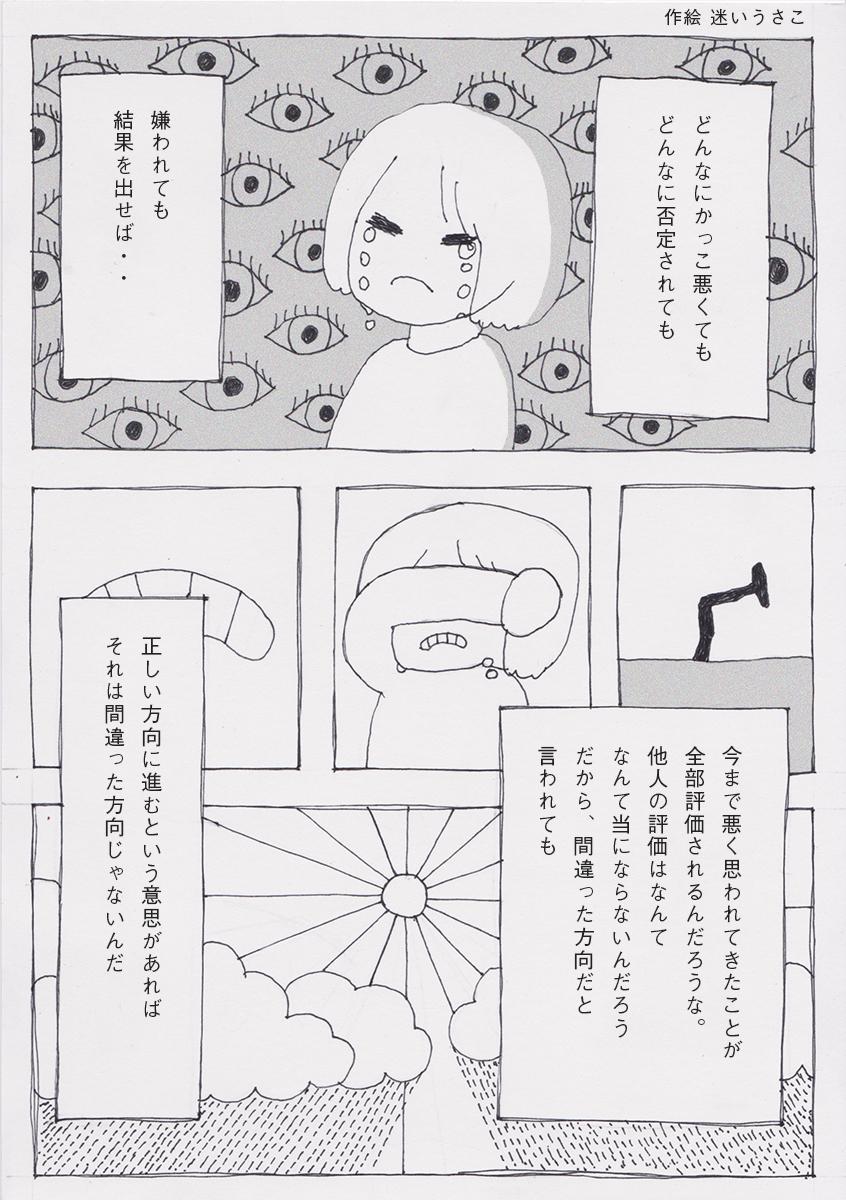 作絵 迷いうさこ
どんなにかっこ悪くても
どんなに否定されても
嫌われても
結果を出せば・・
今まで悪く思われてきたことが
全部評価されるんだろうな。
他人の評価はなんて
なんて当にならないんだろう
だから、間違った方向だと
言われても
正しい方向に進むという意思があれば
それは間違った方向じゃないんだ